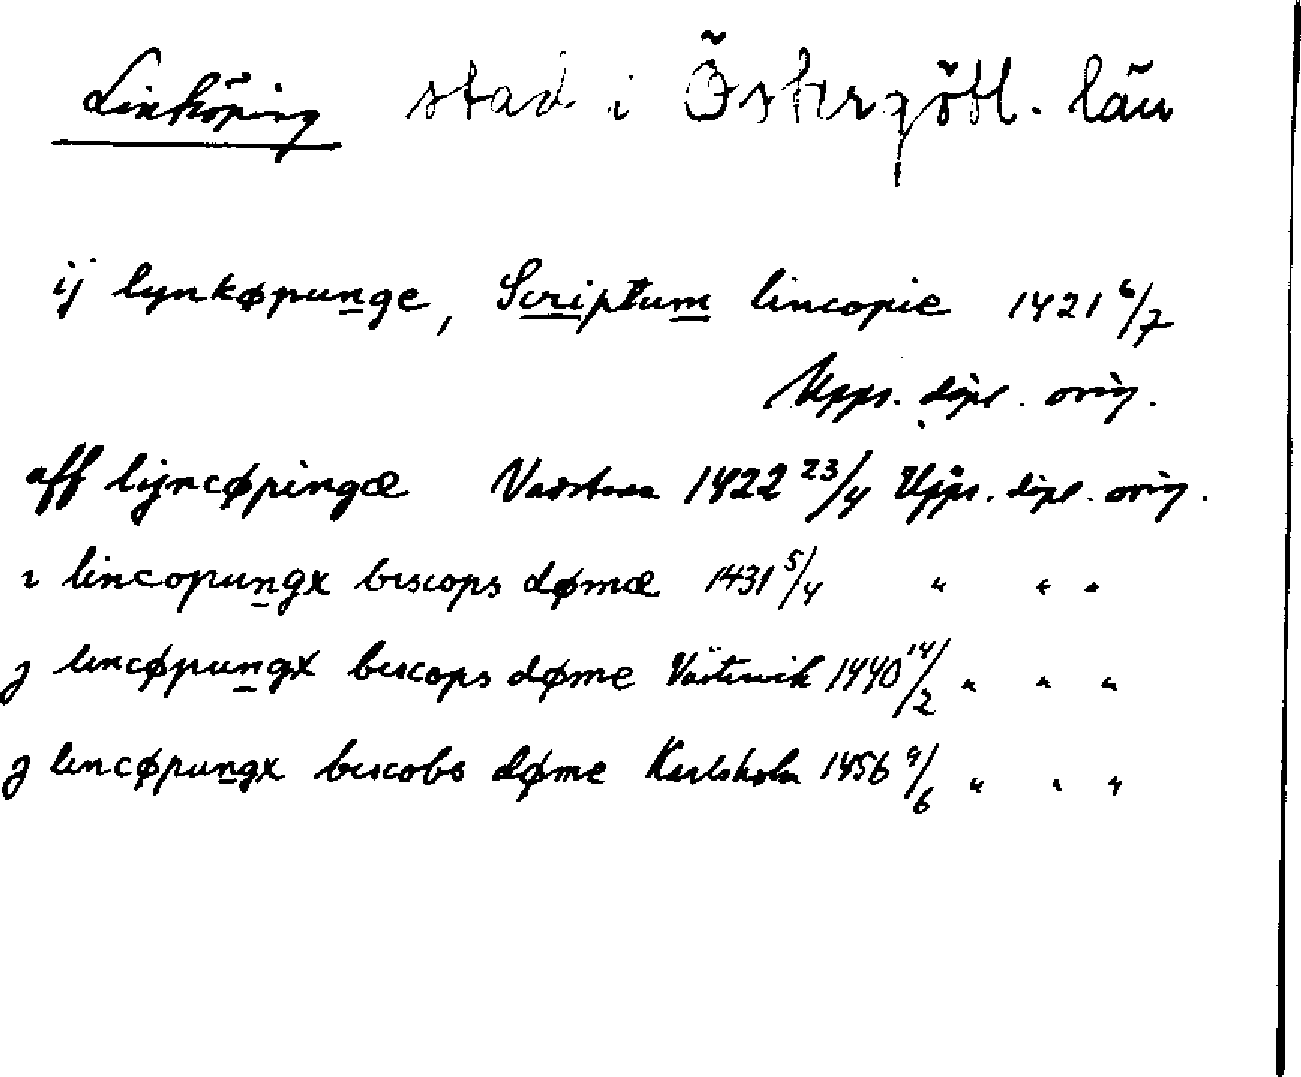 Linköping stad i Östergötl. län
ij lynkøpunge, Scriptum lincopie 1421 6/7
Upps. dipl. orig.
aff lijncøpingæ Vadstena 1422 23/4 Upps. dipl. orig.
i lincopungx biscops dømæ 1431 5/4 " " "
j lincøpungx biscops døme Västervik 1440 14/2 " " "
j lincøpungx biscobs døme Karlsholm 1456 9/6 " " "